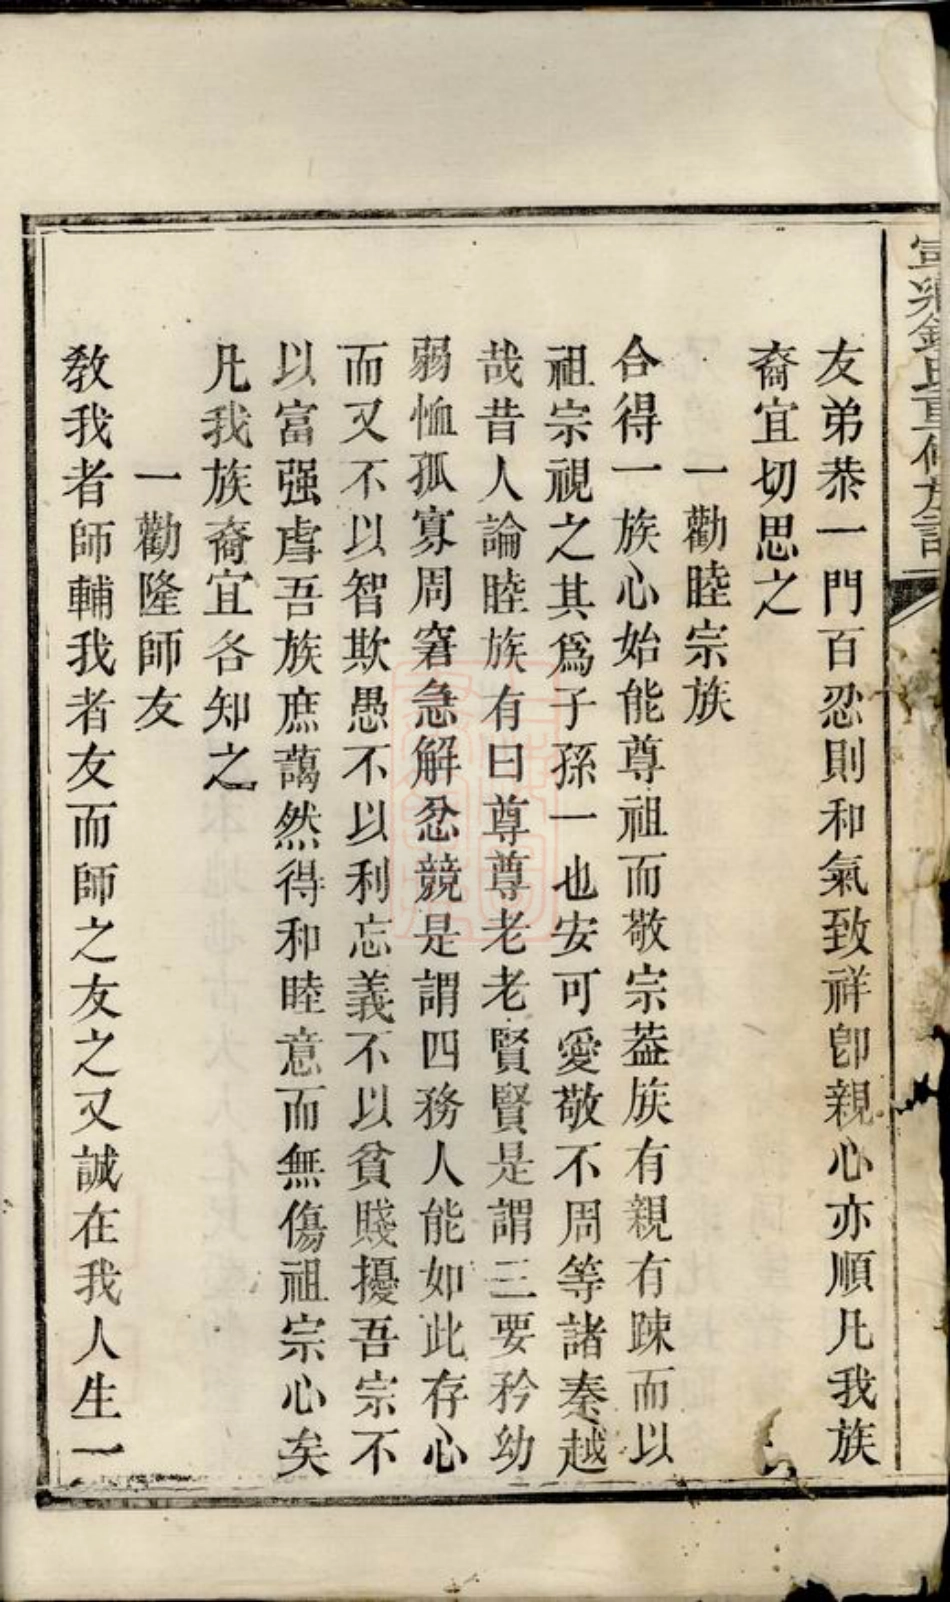 友弟恭一門百忍則和氣致祥卽親心亦順凡我族
裔宜切思之
一勸睦宗族
合得一族心始能尊祖而敬宗葢族有親有踈而以
祖宗視之其爲子孫一也安可愛敬不周等諸秦越
哉昔人論睦族有曰尊尊老老賢賢是謂三要矜幼
弱恤孤寡周窘急解忿競是謂四務人能如此存心
而又不以智欺愚不以利忘義不以貧賤擾吾宗不
以富强虐吾族庶藹然得和睦意而無傷祖宗心矣
凡我族裔宜各知之
一勸隆師友
敎我者師輔我者友而師之友之又誠在我人生一